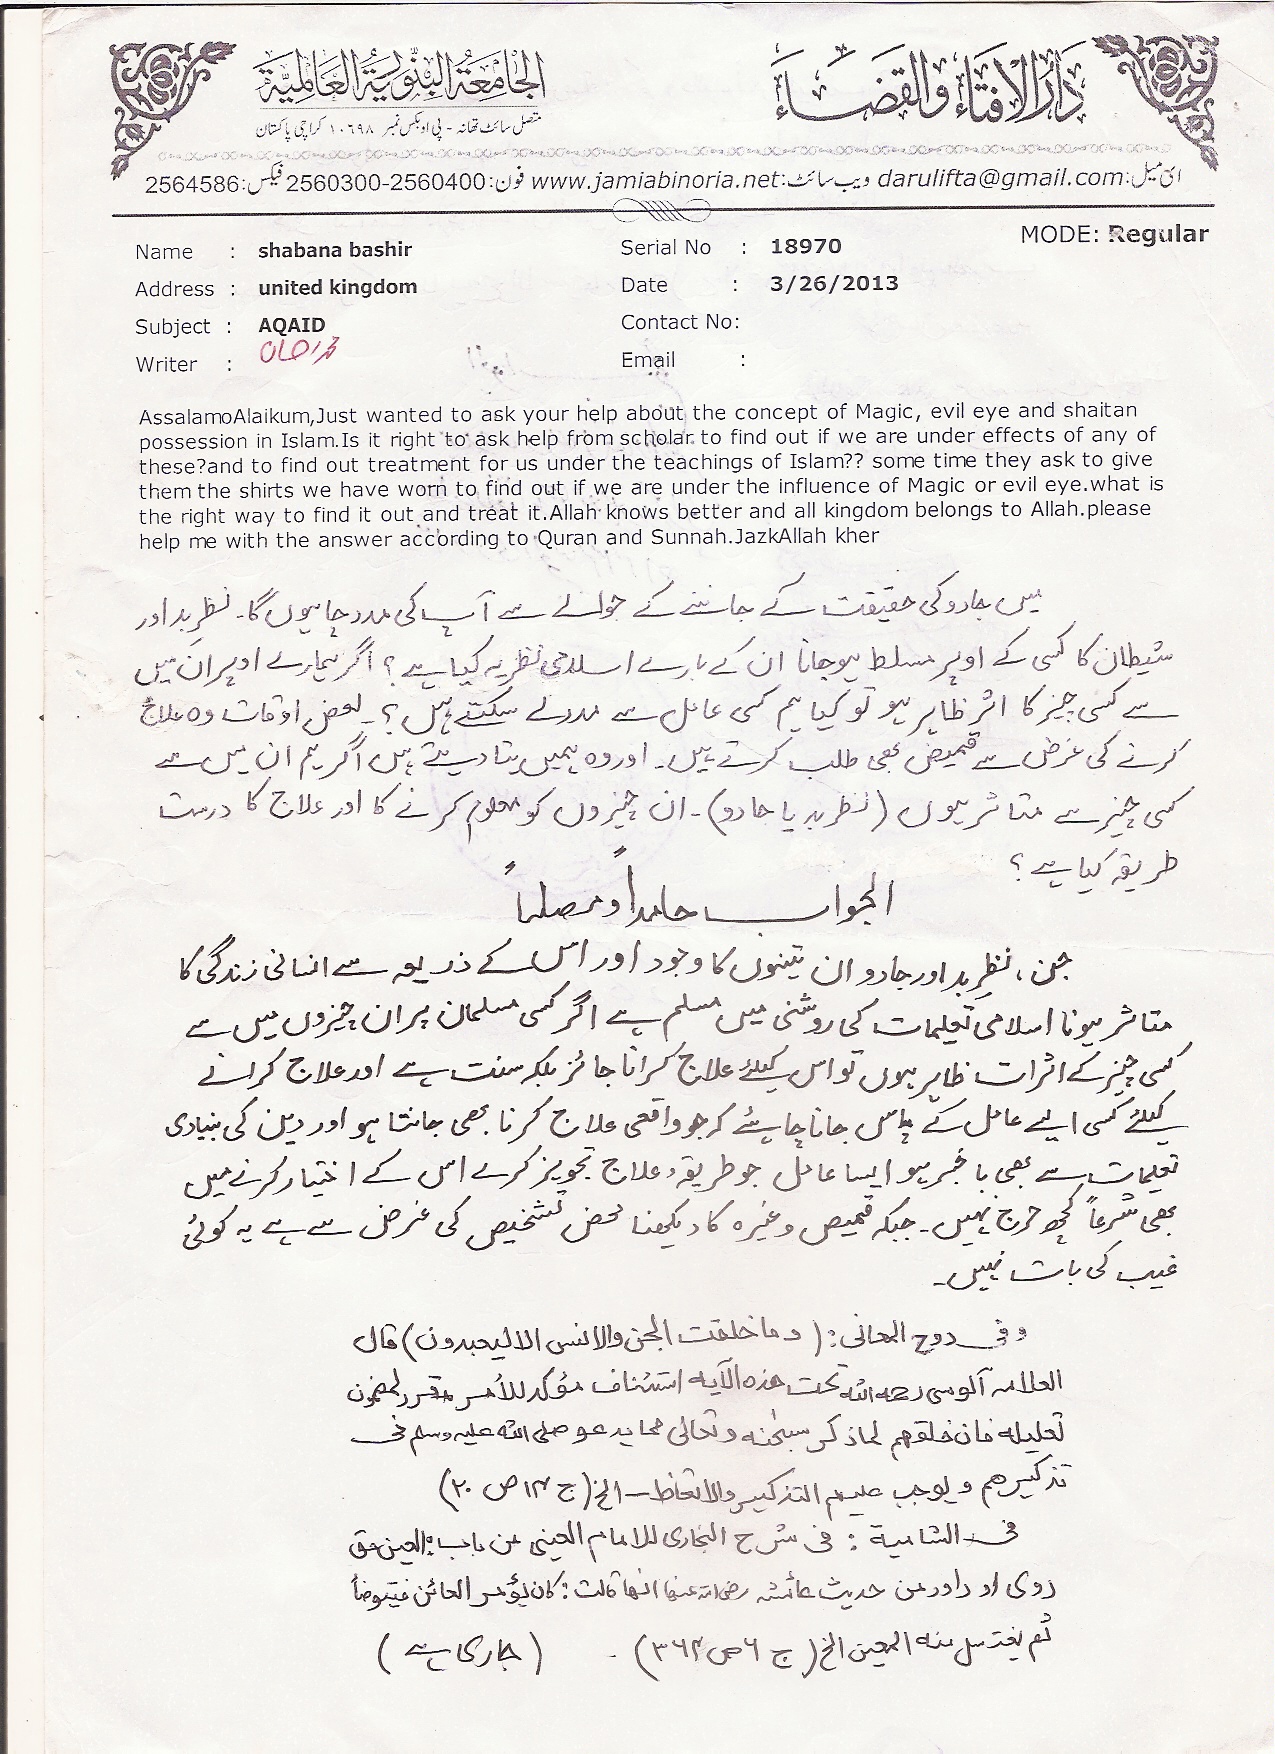 دار الافتاء والقضاء
الجامعة البنورية العالمية
متصل سائٹ تھانہ - پی او بکس نمبر ۱۰۶۹۸ کراچی پاکستان
ای میل: darulifta@gmail.com ویب سائٹ: www.jamiabinoria.net فون: 2560300-2560400 فیکس: 2564586
MODE: Regular
Name : shabana bashir Serial No : 18970
Address : united kingdom Date : 3/26/2013
Subject : AQAID Contact No:
Writer : Email :
AssalamoAlaikum,Just wanted to ask your help about the concept of Magic, evil eye and shaitan
possession in Islam.Is it right to ask help from scholar to find out if we are under effects of any of
these?and to find out treatment for us under the teachings of Islam?? some time they ask to give
them the shirts we have worn to find out if we are under the influence of Magic or evil eye.what is
the right way to find it out and treat it.Allah knows better and all kingdom belongs to Allah.please
help me with the answer according to Quran and Sunnah.JazkAllah kher
میں جادو کی حقیقت کے جاننے کے حوالے سے آپ کی مدد چاہوں گا۔ نظر بد اور
شیطان کا کسی کے اوپر مسلط ہوجانا ان کے بارے اسلامی نظریہ کیا ہے؟ اگر ہمارے اوپر ان میں
سے کسی چیز کا اثر ظاہر ہو تو کیا ہم کسی عامل سے مدد لے سکتے ہیں؟۔ بعض اوقات وہ علاج
کرنے کی غرض سے قمیض بھی طلب کرتے ہیں۔ اور وہ ہمیں بتا دیتے ہیں اگر ہم ان میں سے
کسی چیز سے متاثر ہوں (نظر بد یا جادو)۔ ان چیزوں کو معلوم کرنے کا اور علاج کا درست
طریقہ کیا ہے؟
الجواب حامداً ومصلیاً
جن، نظرِ بد اور جادو ان تینوں کا وجود اور اس کے ذریعہ سے انسانی زندگی کا
متاثر ہونا اسلامی تعلیمات کی روشنی میں مسلم ہے اگر کسی مسلمان پر ان چیزوں میں سے
کسی چیز کے اثرات ظاہر ہوں تو اس کیلئے علاج کرانا جائز بلکہ سنت ہے اور علاج کرانے
کیلئے کسی ایسے عامل کے پاس جانا چاہئے کہ جو واقعی علاج کرنا بھی جانتا ہو اور دین کی بنیادی
تعلیمات سے بھی باخبر ہو ایسا عامل جو طریقہء علاج تجویز کرے اس کے اختیار کرنے میں
بھی شرعاً کچھ حرج نہیں۔ جبکہ قمیص وغیرہ کا دیکھنا محض تشخیص کی غرض سے ہے یہ کوئی
غیب کی بات نہیں۔
وفی روح المعانی: (وما خلقت الجن والانس الا لیعبدون) قال
العلامہ آلوسی رحمہ اللہ تحت ھذہ الآیہ استئناف مؤکد للأمر مقرر لمضمون
تعلیلہ فان خلقھم لما ذکر سبحٰنہ وتعالیٰ مما یدعو صلی اللہ علیہ وسلم فی
تذکیرھم ویوجب علیھم التذکیر والاتعاظ ــ الخ (ج ۱۴ ص ۲۰)
فی الشامیۃ: فی شرح البخاری للامام العینی من باب: العین حق
روی ابو داود من حدیث عائشہ رضی اللہ عنھا انھا قالت: کان یؤمر العائن فیتوضأ
ثم یغتسل منہ المعین الخ (ج ۶ ص ۳۶۴)۔ (جاری ہے)